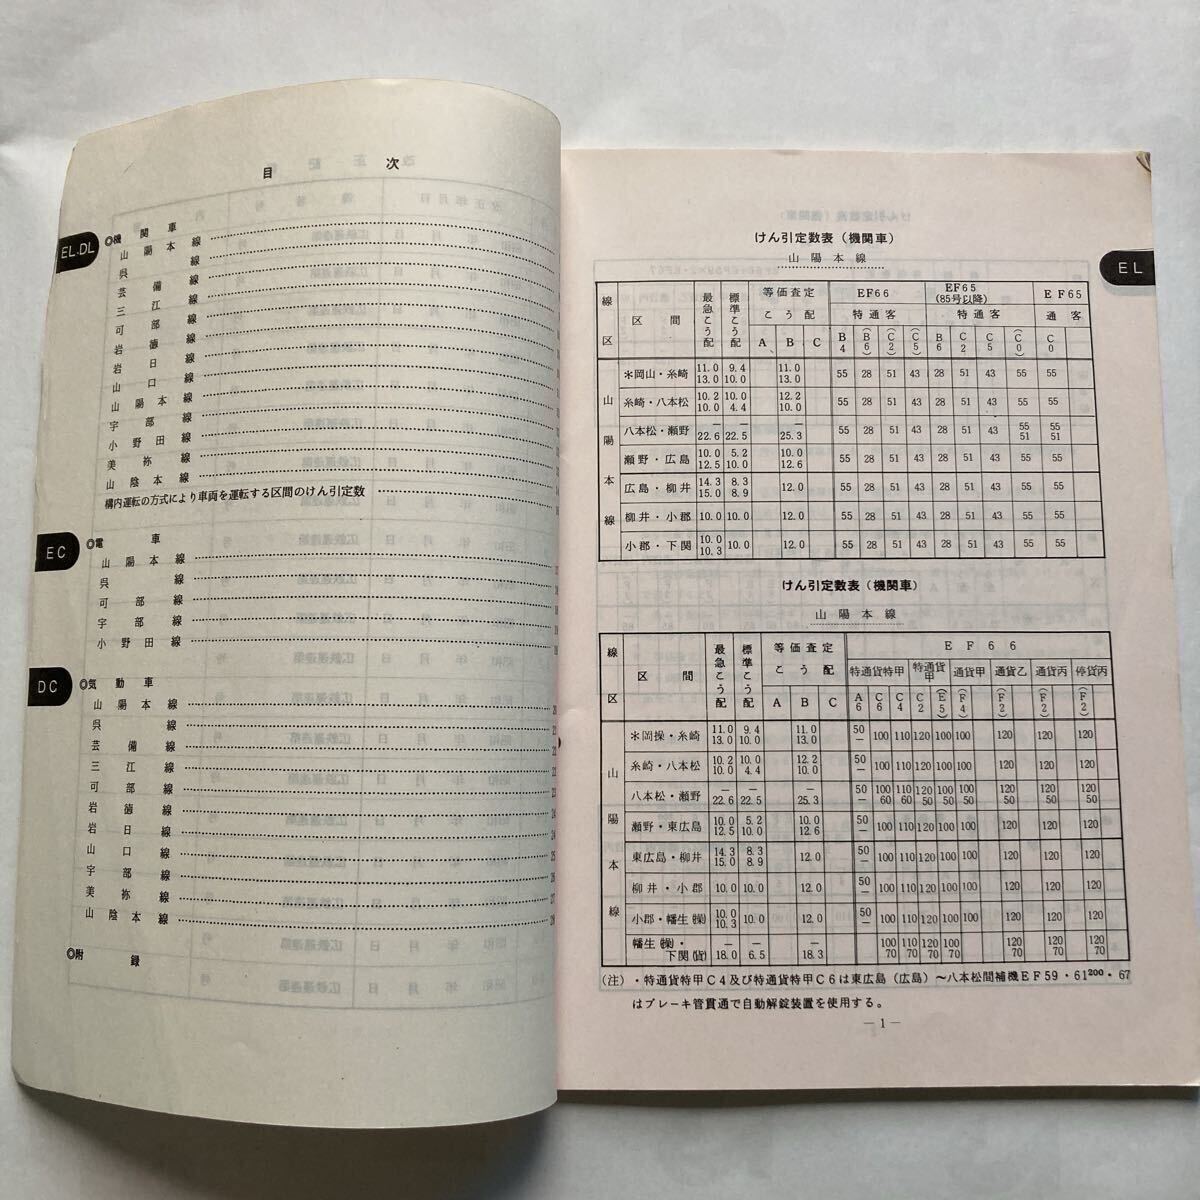 目　次
EL.DL
◎機関車
山陽本線
呉線
芸備線
三江線
可部線
岩徳線
岩日線
山口線
山陽本線
宇部線
小野田線
美祢線
山陰本線
構内運転の方式により車両を運転する区間のけん引定数
EC
◎電車
山陽本線
呉線
可部線
宇部線
小野田線
DC
◎気動車
山陽本線 20
呉線 21
芸備線 22
三江線 22
可部線 23
岩徳線 24
岩日線 24
山口線 25
宇部線 26
美祢線 27
山陰本線 28
◎附録
EL
けん引定数表（機関車）
山陽本線
線区 区間 最急こう配 標準こう配 等価査定こう配 EF66 EF65(85号以降) EF65
特通客 特通客 通客
A B C B4 (B6) (C2) (C5) B6 C2 C5 (C0) C0
山陽本線
＊岡山・糸崎 11.0 13.0 9.4 10.0 11.0 13.0 55 28 51 43 28 51 43 55 55
糸崎・八本松 10.2 10.0 10.0 4.4 12.2 10.0 55 28 51 43 28 51 43 55 55
八本松・瀬野 － 22.6 － 22.5 － 25.3 55 28 51 43 28 51 43 55 51 55 51
瀬野・広島 10.0 12.5 5.2 10.0 10.0 12.6 55 28 51 43 28 51 43 55 55
広島・柳井 14.3 15.0 8.3 8.9 12.0 55 28 51 43 28 51 43 55 55
柳井・小郡 10.0 10.0 12.0 55 28 51 43 28 51 43 55 55
小郡・下関 10.0 10.3 10.0 12.0 55 28 51 43 28 51 43 55 55
けん引定数表（機関車）
山陽本線
線区 区間 最急こう配 標準こう配 等価査定こう配 EF66
特通貨特甲 特通貨甲 通貨甲 通貨乙 通貨丙 停貨丙
A B C A6 C6 C4 C2 (E5) (F4) (F2) (F2) (F2)
山陽本線
＊岡操・糸崎 11.0 13.0 9.4 10.0 11.0 13.0 50 － 100 110 120 100 100 120 120 120
糸崎・八本松 10.2 10.0 10.0 4.4 12.2 10.0 50 － 100 110 120 100 100 120 120 120
八本松・瀬野 － 22.6 － 22.5 － 25.3 50 － 100 60 110 60 120 50 100 50 100 50 120 50 120 50 120 50
瀬野・東広島 10.0 12.5 5.2 10.0 10.0 12.6 50 － 100 110 120 100 100 120 120 120
東広島・柳井 14.3 15.0 8.3 8.9 12.0 50 － 100 110 120 100 100 120 120 120
柳井・小郡 10.0 10.0 12.0 50 － 100 110 120 100 100 120 120 120
小郡・幡生(操) 10.0 10.3 10.0 12.0 50 － 100 110 120 100 100 120 120 120
幡生(操)・下関(貨) － 18.0 － 6.5 － 18.3 100 70 110 70 120 70 100 70 120 70 120 70 120 70
（注）・特通貨特甲C4及び特通貨特甲C6は東広島（広島）～八本松間補機EF59・61200・67
はブレーキ管貫通で自動解錠装置を使用する。
－1－